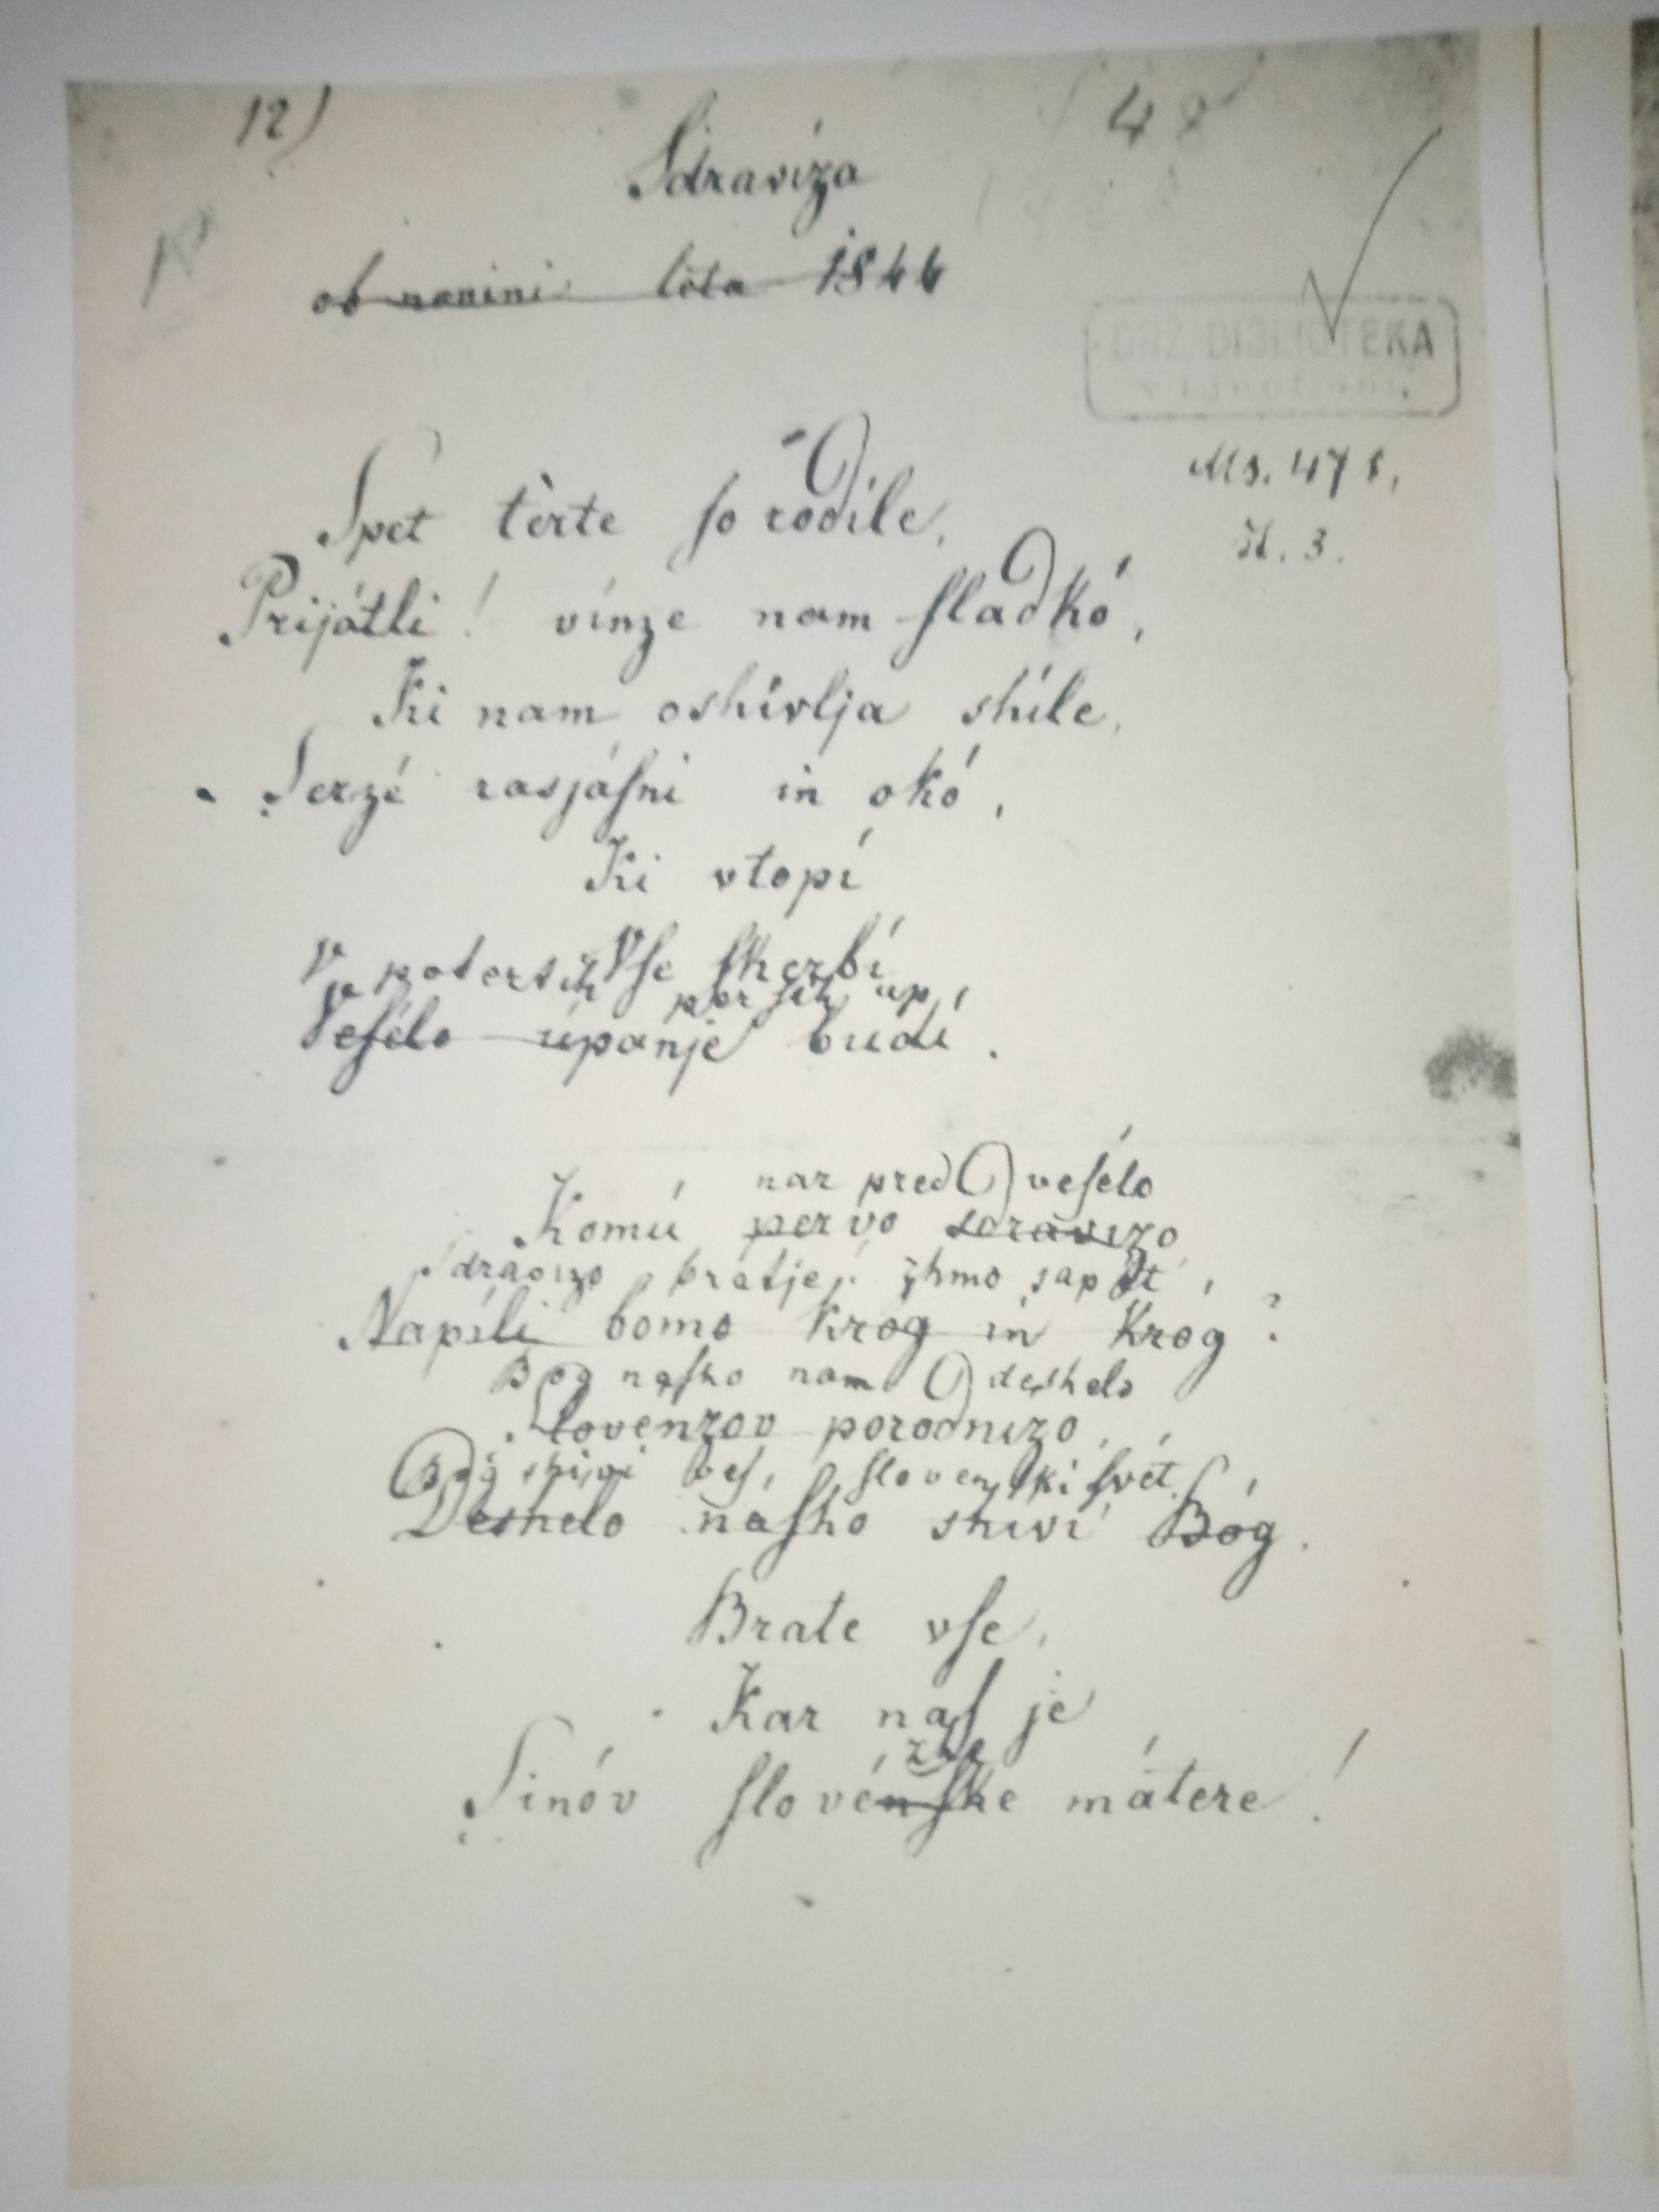 12)
48
Sdraviza
ob novini léta 1844
DRŽ. BIBLIOTEKA
Ms. 471,
št. 3.
Spet tèrte ſo rodile,
Prijátli! vínze nam ſladkó,
Ki nam oshívlja shíle,
Serzé rasjáſni in okó,
Ki vtopí
Vſe ſkerbí
V potertih perſih up
Veſélo úpanje budí.
nar pred veſélo
Komú pervo sdravizo
Sdravizo, bratje! zhmo sapét',
Napíli bomo krog in krog?
Bog naſho nam deshelo
Slovénzov porodnizo,
Bog shivi veſ, ſlovenſki ſvét,
Deshelo náſho shivi Bóg.
Brate vſe,
Kar naſ je
zhe
Sinóv ſlovénſke mátere!